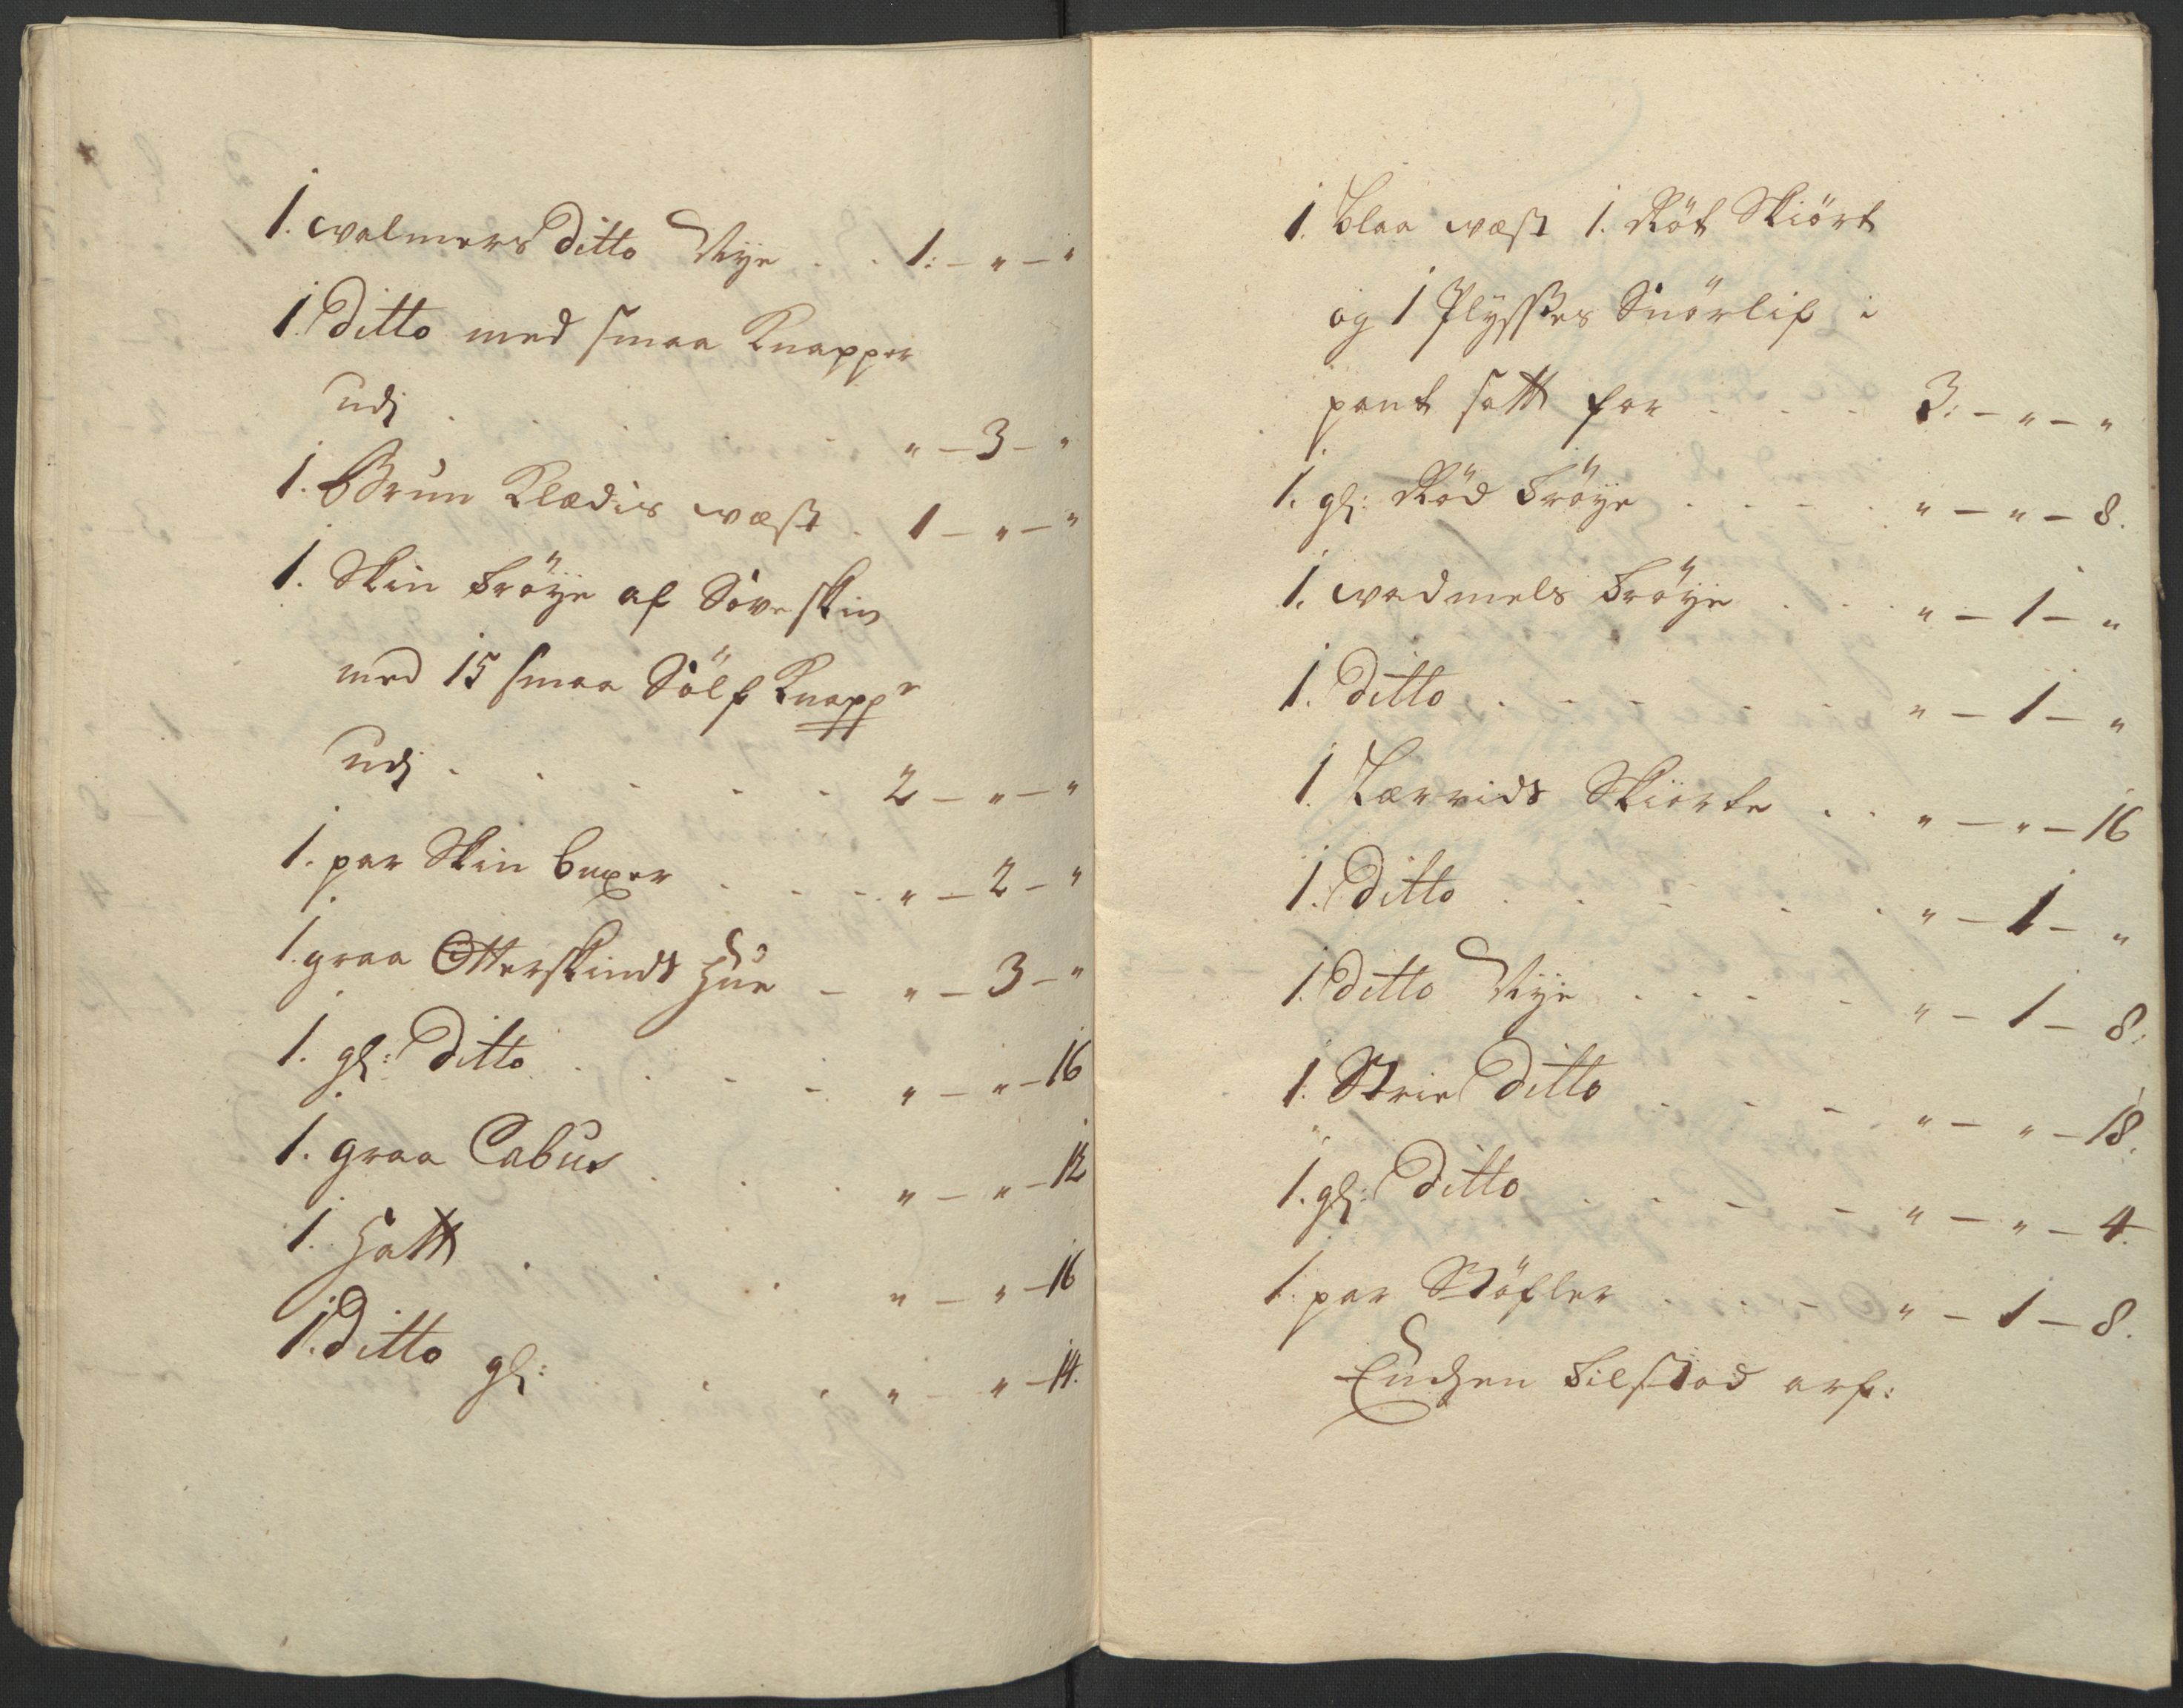 1. walmers Ditto Nye . . 1: - " - "
1. Ditto med smaa Knapper
udj . . . . . " - 3 - "
1. Brun Klædis wæst . 1 - " - "
1. Skin trøÿe af Soveskin
med 15 smaa Sölf Knappr
udj . . . . . 2 - " - "
1. par Skin buxer . . . . " - 2 - "
1. graa Otterskinds Hue - " - 3 - "
1. gl: Ditto . . . - " - " - 16
1. graa Cabus . . . " - " - 12
1. Hatt . . . " - " - 16
1. Ditto gl: . . . " - " - 14.
1. blaa wæst 1. Röt Skiört
og 1 Plysses Snörlif i
pant satt for . . . 3: - " - "
1. gl: Röd tröye . . . . " - " - 8.
1. wadmels tröye . . . " - 1 - "
1. Ditto . . . . . " - 1 - "
1. Lærrids Skiorte . . " - " - 16
1. Ditto . . . . . " - 1 - "
1. Ditto Nÿe . . . . " - 1 - 8:
1. Strie Ditto . . . " - " - 18.
1. gl: Ditto . . . . " - " - 4.
1. par Stöfler . . . " - 1 - 8.
tilstod arf: